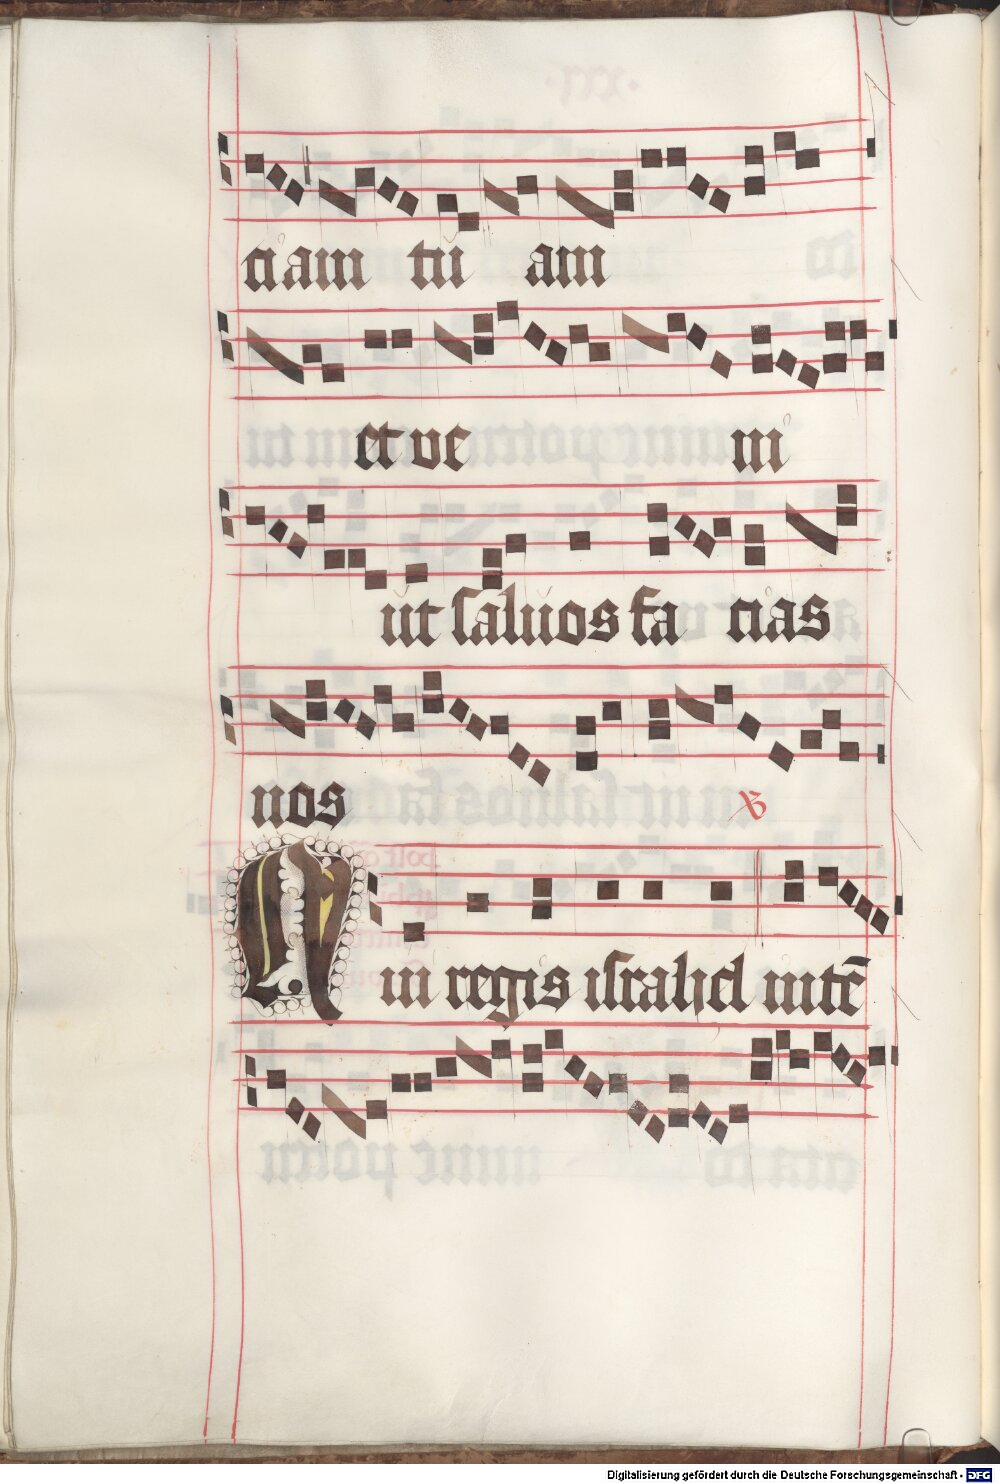 ciam tu am
et ve ni
ut salvos fa cias
nos ℣
Qui regis israhel intē
Digitalisierung gefördert durch die Deutsche Forschungsgemeinschaft - DFG